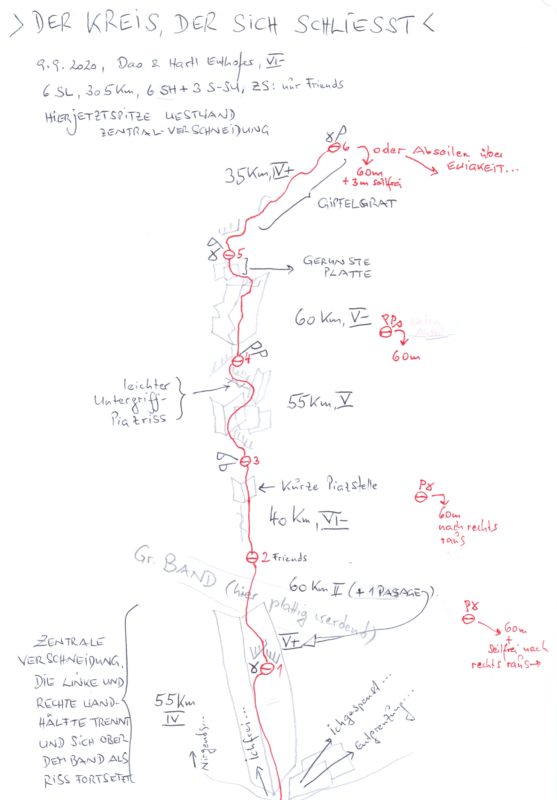 > DER KREIS, DER SICH SCHLIESST <
9.9.2020, Dao & Hartl Enthofer, VI-
6 SL, 305 Km, 6 SH + 3 S-SU, ZS: nur Friends
HIERJETZTSPITZE WESTWAND
ZENTRAL-VERSCHNEIDUNG
6
oder Abseilen über
EWIGKEIT...
60m
+ 3m seilfrei
35 Km, IV+
GIPFELGRAT
5
GERUNSTE
PLATTE
60 Km, V-
60m
4
leichter
Untergriff-
Piazriss
55 Km, V
3
Kurze Piazstelle
40 Km, VI-
60m
nach rechts
raus
2 Friends
Gr. BAND (hier plattig werdend)
60 Km II (+ 1 PASSAGE)
V+
60m
+
seilfrei nach
rechts raus →
1
ZENTRALE
VERSCHNEIDUNG,
DIE LINKE UND
RECHTE WAND-
HÄLFTE TRENNT
UND SICH OBER
DEM BAND ALS
RISS FORTSETZT
55 Km
IV
Nirgends...
Ichgespenst...
Entgrenzung...